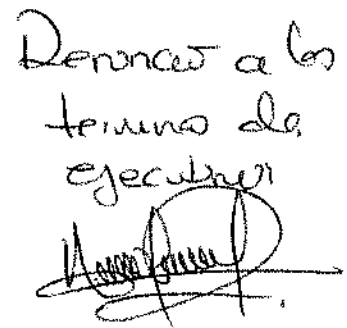 Renuncio a los
termino de
ejecutoria